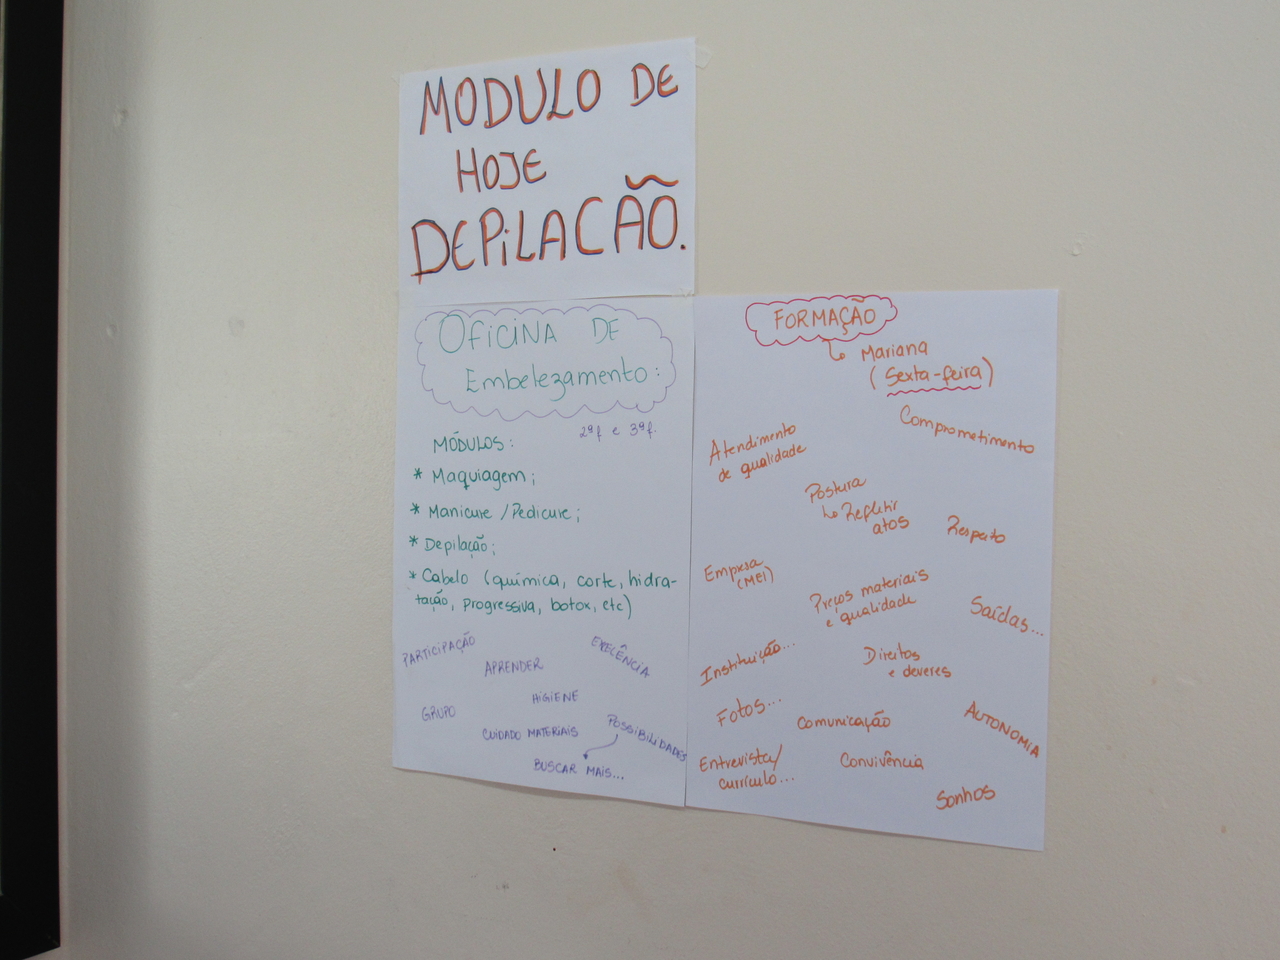 MODULO DE
HOJE
DEPiLACÃO.
OFiCiNA DE
Embelezamento:
2ªf e 3ªf.
MÓDULOS:
* Maquiagem;
* Manicure / Pedicure;
* Depilação;
* Cabelo (química, corte, hidra-
tação, progressiva, botox, etc)
PARTICIPAÇÃO
EXELÊNCIA
APRENDER
HiGiENE
GRUPO
CUIDADO MATERIAIS
POSSIBILIDADES
BUSCAR MAIS...
FORMAÇÃO
Mariana
(Sexta-feira)
Comprometimento
Atendimento
de qualidade
Postura
Refletir
atos
Respeito
Empresa
(MEI)
Preços materiais
e qualidade
Saídas...
Instituição...
Direitos
e deveres
Fotos...
Comunicação
AUTONOMIA
Entrevista/
currículo...
Convivência
Sonhos